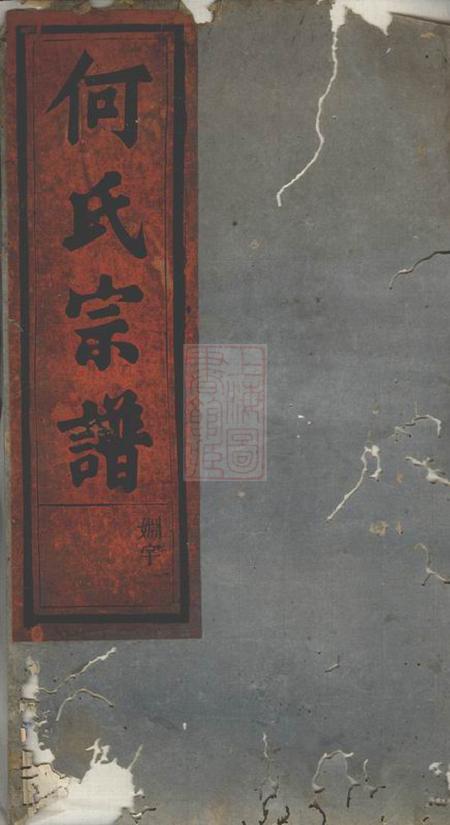 何氏宗譜
嫺字
上海圖
書館藏